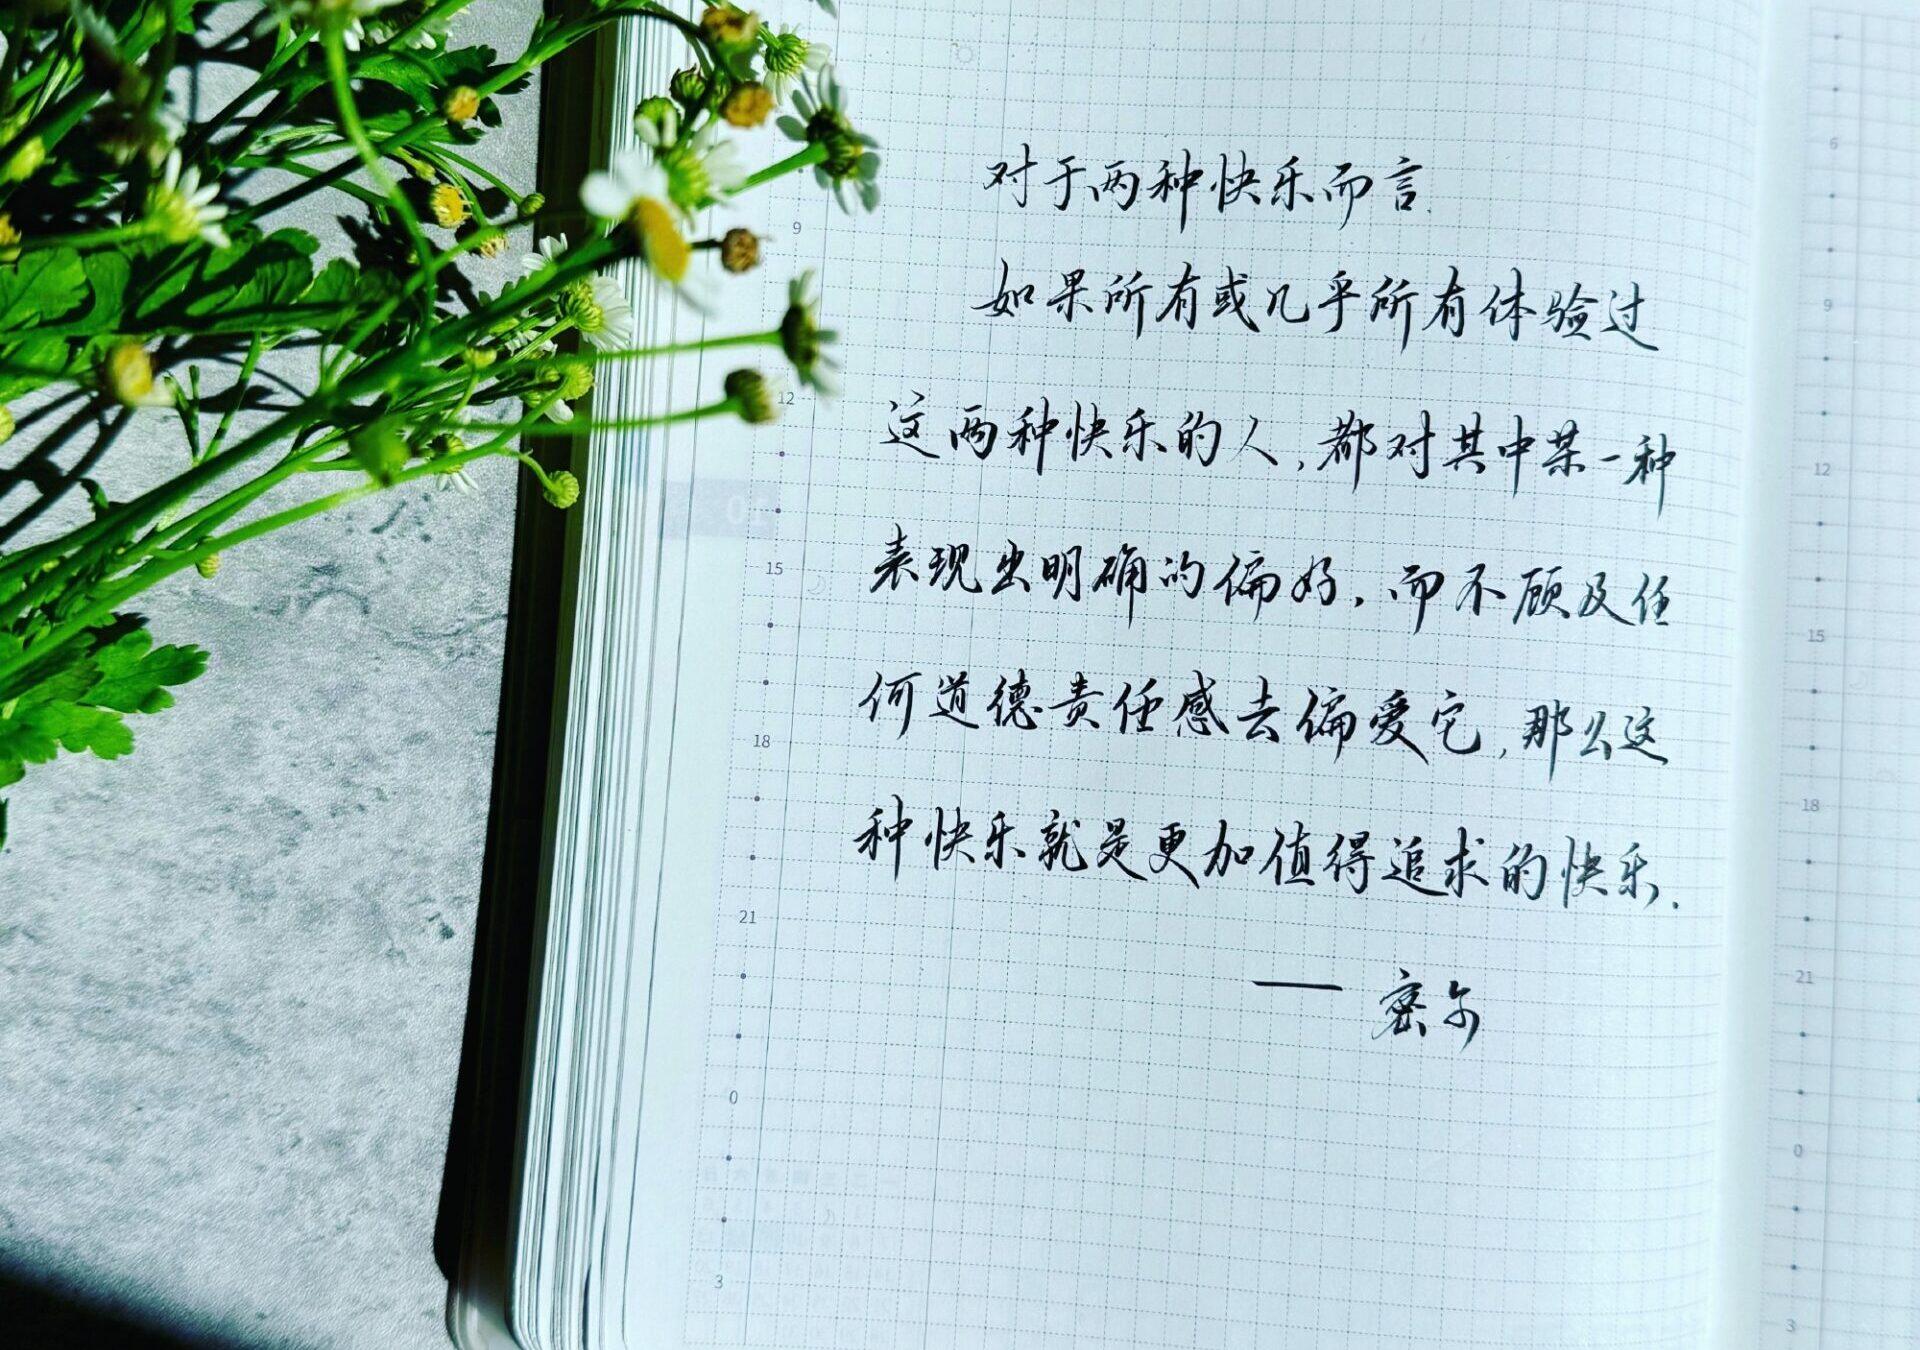 对于两种快乐而言.
如果所有或几乎所有体验过
这两种快乐的人,都对其中某一种
表现出明确的偏好,而不顾及任
何道德责任感去偏爱它,那么这
种快乐就是更加值得追求的快乐.
—— 密尔
9
12
15
18
21
0
3
6
9
12
15
18
21
0
3